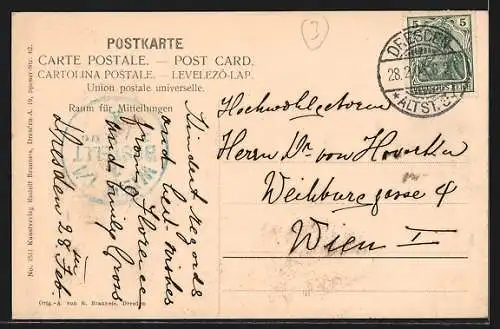 POSTKARTE
CARTE POSTALE. — POST CARD.
CARTOLINA POSTALE. — LEVELEZŐ-LAP.
Union postale universelle.
Raum für Mitteilungen
Kindest regards
and best wishes
from Florence
and Emily Gross
Dresden 28 Feb.
No. 2511 Kunstverlag Rudolf Brauneis, Dresden-A. 19,
Orig.-A. von R. Brauneis, Dresden
5 5
DRESDEN
28.2.
*ALTST.
Hochwohlgeboren
Herrn Dr von
Weihburggasse 4
Wien I